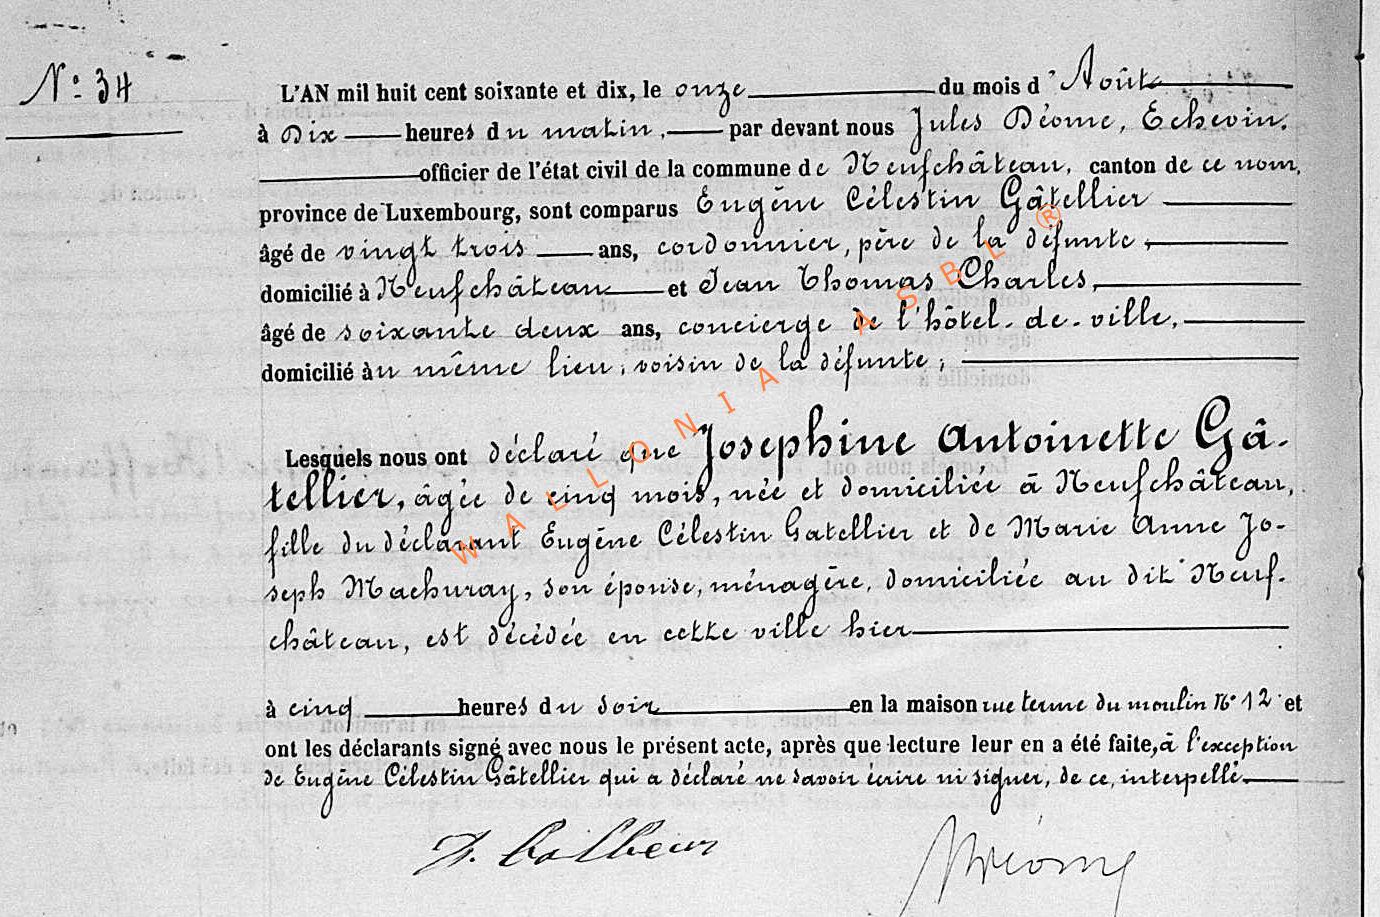 N° 34
L'AN mil huit cent soixante et dix, le onze du mois d'Août
à Dix heures du matin, par devant nous Jules Déome, Echevin,
officier de l'état civil de la commune de Neufchâteau, canton de ce nom,
province de Luxembourg, sont comparus Eugène Célestin Gâtellier
âgé de vingt trois ans, cordonnier, père de la défunte,
domicilié à Neufchâteau et Jean Thomas Charles,
âgé de soixante deux ans, concierge de l'hôtel-de-ville,
domicilié au même lieu, voisin de la défunte;
Lesquels nous ont déclaré que Josephine Antoinette Gâ-
tellier, âgée de cinq mois, née et domiciliée à Neufchâteau,
fille du déclarant Eugène Célestin Gatellier et de Marie Anne Jo-
seph Machuray, son épouse, ménagère, domiciliée au dit Neuf-
château, est décédée en cette ville hier
à cinq heures du soir en la maison rue terme du moulin N° 12 et
ont les déclarants signé avec nous le présent acte, après que lecture leur en a été faite, à l'exception
de Eugène Célestin Gâtellier qui a déclaré ne savoir écrire ni signer, de ce, interpellé.
JDéome
WALLONIA ASBL ®